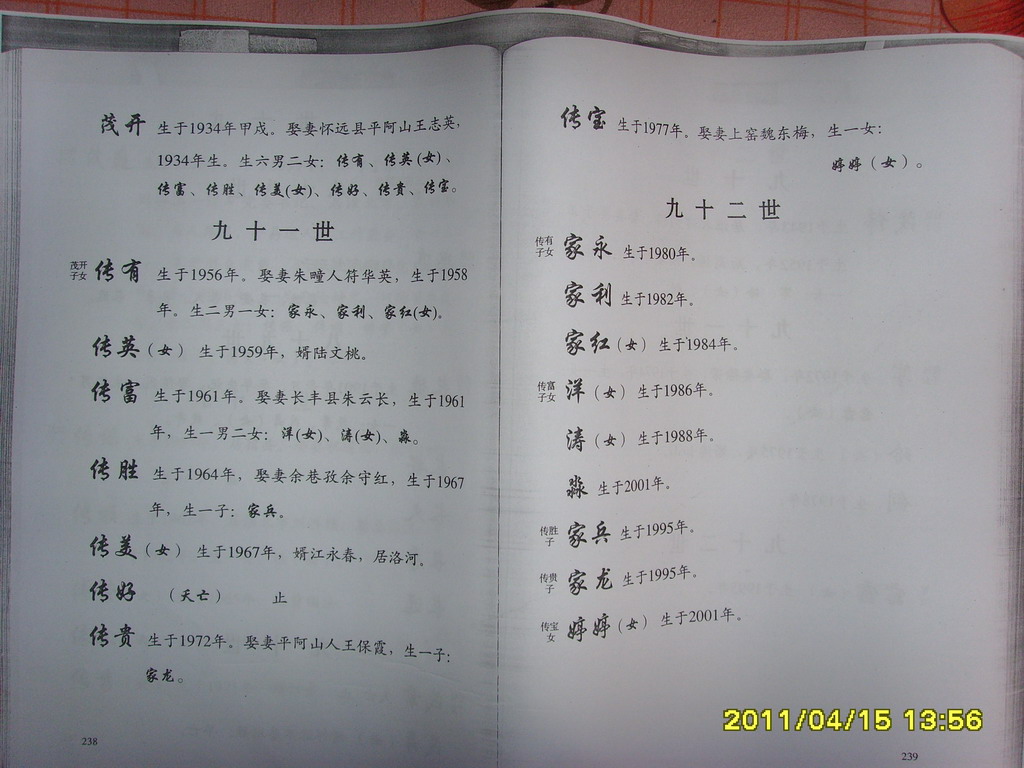 茂开 生于1934年甲戌。娶妻怀远县平阿山王志英，
1934年生。生六男二女：传有、传英(女)、
传富、传胜、传美(女)、传好、传贵、传宝。
九十一世
茂开
子女
传有 生于1956年。娶妻朱疃人符华英，生于1958
年。生二男一女：家永、家利、家红(女)。
传英（女） 生于1959年，婿陆文桃。
传富 生于1961年。娶妻长丰县朱云长，生于1961
年，生一男二女：洋(女)、涛(女)、淼。
传胜 生于1964年，娶妻余巷孜余守红，生于1967
年，生一子：家兵。
传美（女） 生于1967年，婿江永春，居洛河。
传好 （夭亡） 止
传贵 生于1972年。娶妻平阿山人王保霞，生一子：
家龙。
238
传宝 生于1977年。娶妻上窑魏东梅，生一女：
婷婷（女）。
九十二世
传有
子女
家永 生于1980年。
家利 生于1982年。
家红（女） 生于1984年。
传富
子女
洋（女） 生于1986年。
涛（女） 生于1988年。
淼 生于2001年。
传胜
子
家兵 生于1995年。
传贵
子
家龙 生于1995年。
传宝
女
婷婷（女） 生于2001年。
239
2011/04/15 13:56